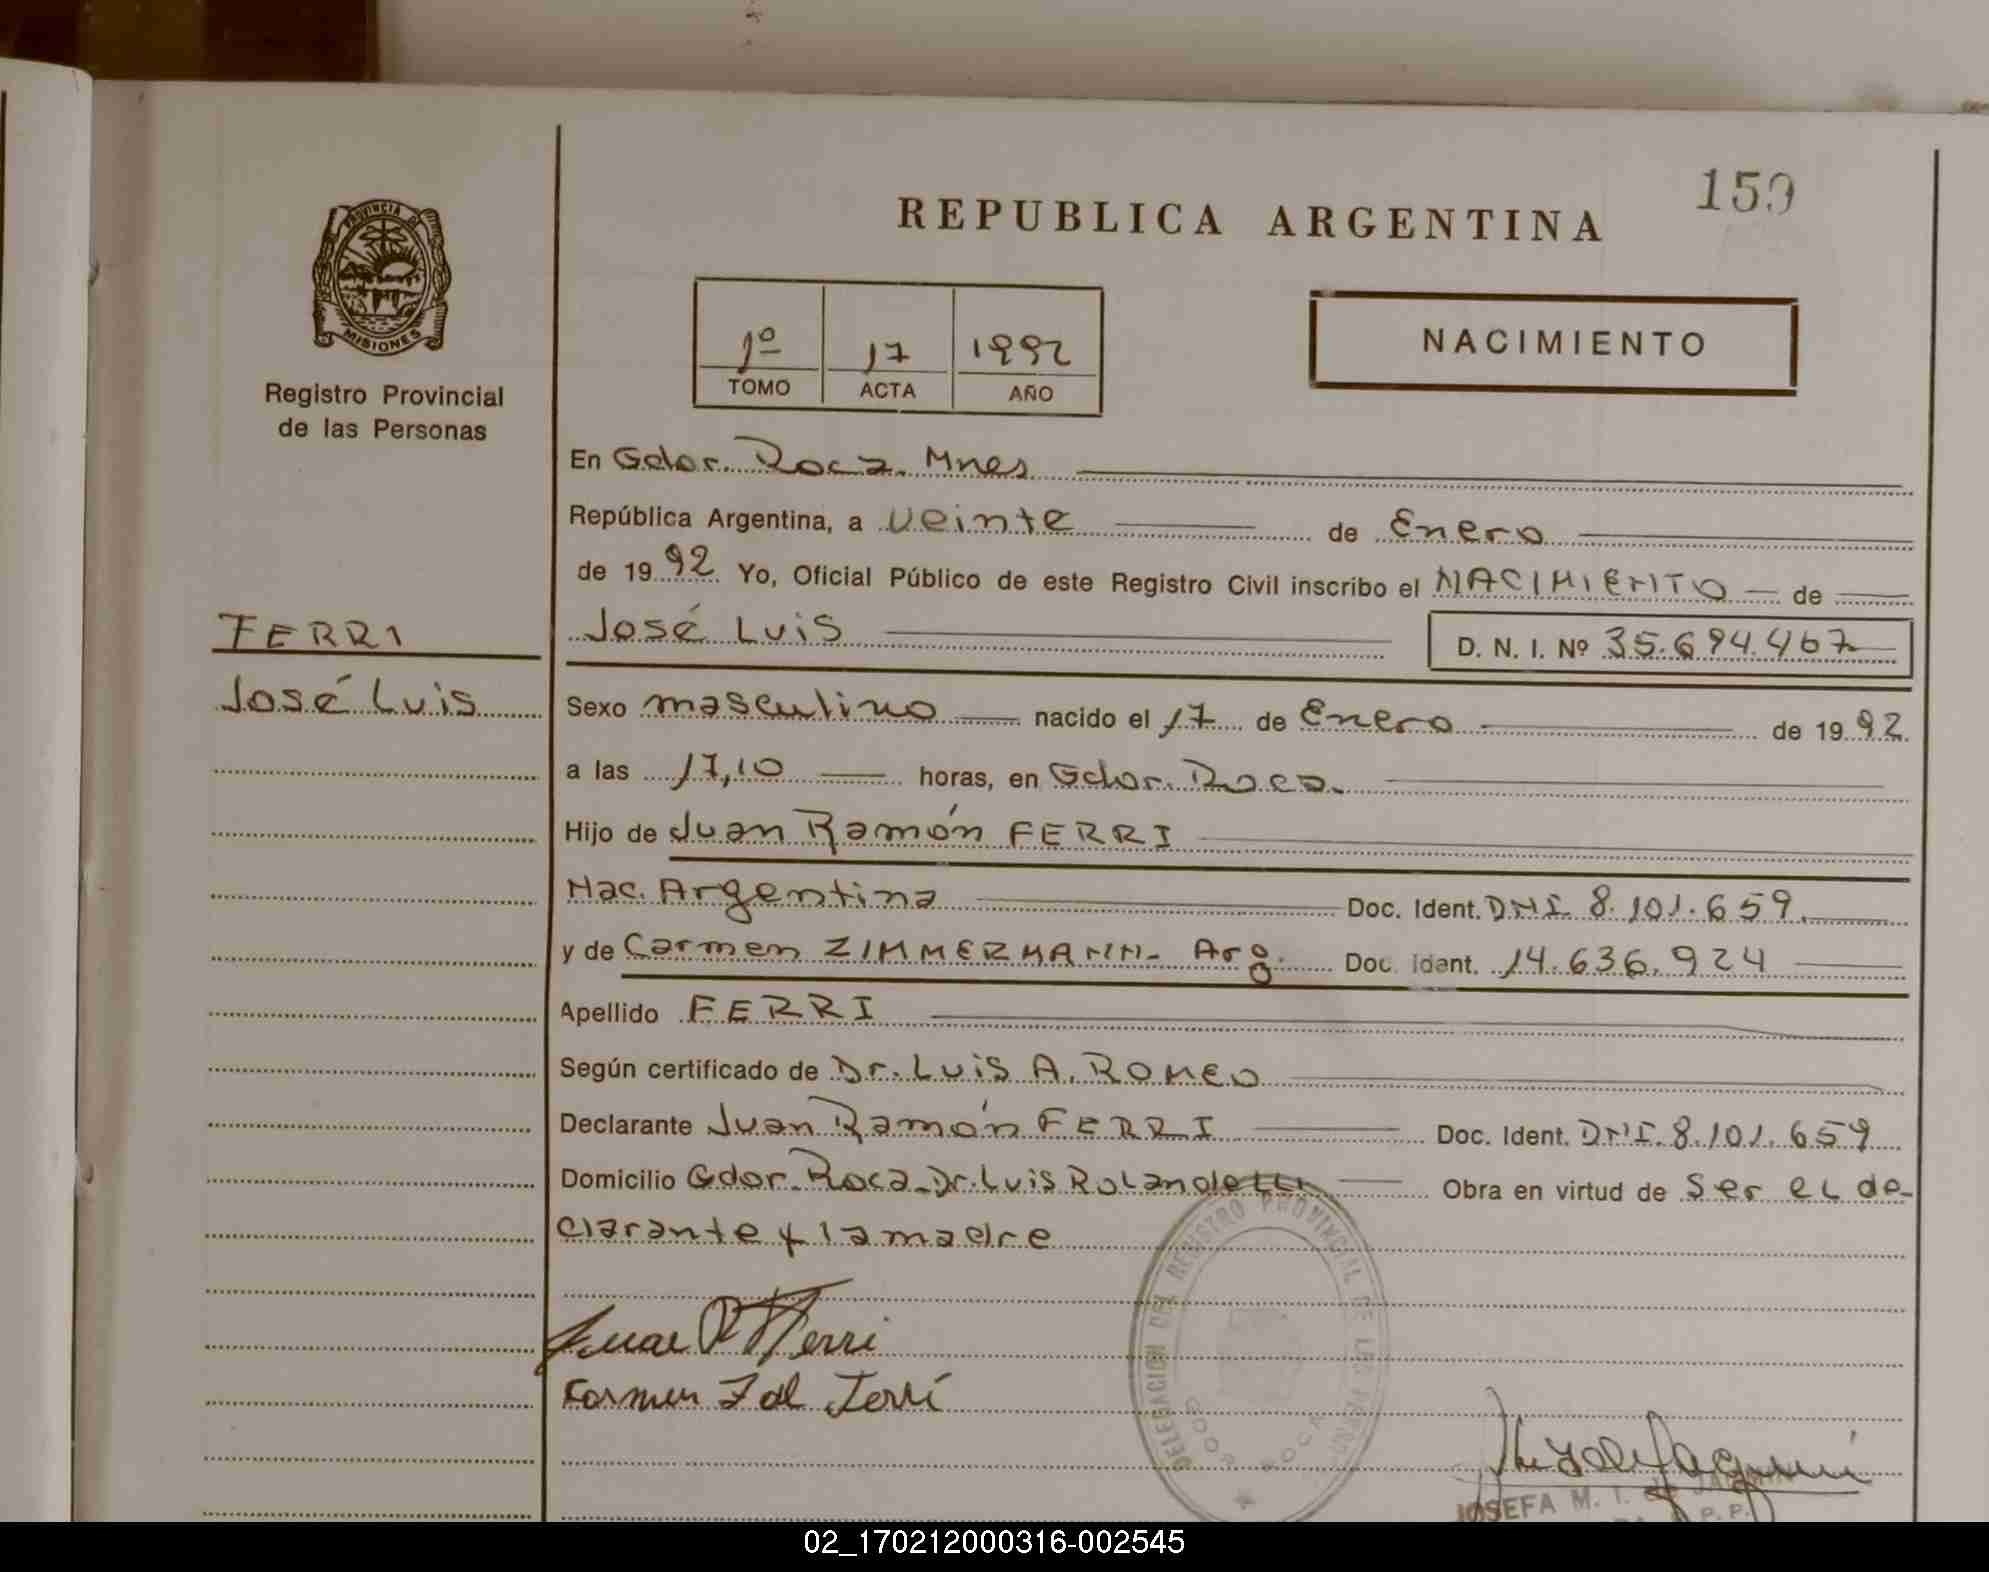 159
REPUBLICA ARGENTINA
PROVINCIA DE
MISIONES
Registro Provincial
de las Personas
1º 17 1992
TOMO ACTA AÑO
NACIMIENTO
En Gdor. Roca. Mnes
República Argentina, a veinte de Enero
de 1992 Yo, Oficial Público de este Registro Civil inscribo el NACIMIENTO de
José Luis D. N. I. Nº 35.694.467
FERRI
José Luis
Sexo masculino nacido el 17 de Enero de 1992
a las 17,10 horas, en Gdor. Roca.
Hijo de Juan Ramón FERRI
Nac. Argentina Doc. Ident. DNI 8.101.659.
y de Carmen ZIMMERMANN- Arg. Doc. Ident. 14.636.924
Apellido FERRI
Según certificado de Dr. Luis A. ROMEO
Declarante Juan Ramón FERRI Doc. Ident. DNI. 8.101.659
Domicilio Gdor. Roca-Dr. Luis Rolandelli Obra en virtud de Ser el de-
clarante y la madre
DELEGACION DEL REGISTRO PROVINCIAL DE LAS PERSO
GDOR ROCA
Juan R Ferri
Carmen Z de Ferri
JOSEFA M. I. de
P. P.
02_170212000316-002545